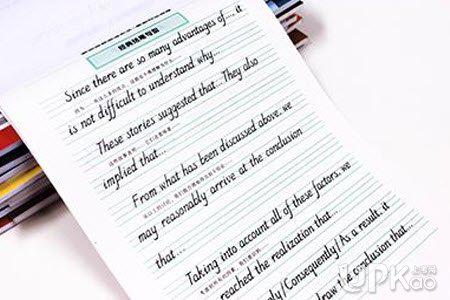 经典结尾句型
Since there are so many advantages of..., it
is not difficult to understand why...
These stories suggested that...They also
implied that...
From what has been discussed above, we
may reasonably arrive at the conclusion
that...
Taking into account all of these factors, we
reached the realization that...
/Consequently/As a result, it
draw the conclusion that...
UPKao